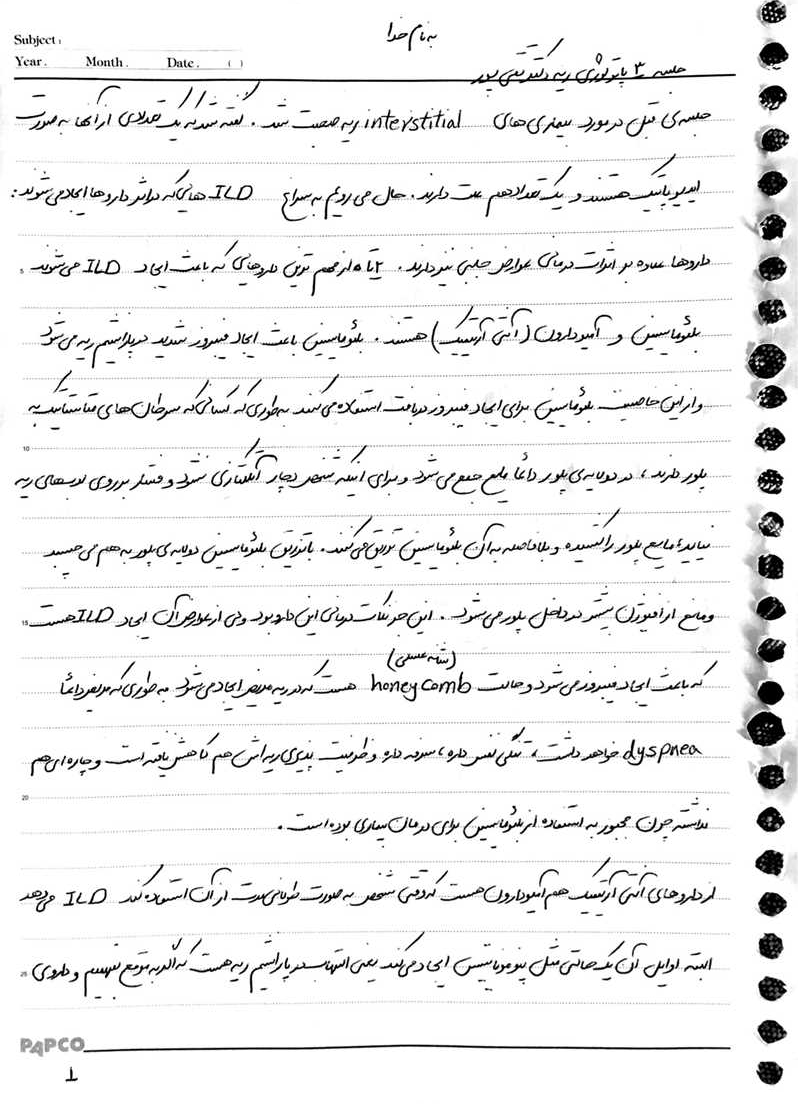 به نام خدا
Subject:
Year. Month. Date. ( )
جلسه ۳ پاتولوژی ریه دکتر تقی پور
جلسه‌ی قبل در مورد بیماری های interstitial ریه صحبت شد. گفته شد که یک تعدادی از آنها به صورت
ایدیوپاتیک هستند و یک تعداد هم علت دارند. حال می رویم به سراغ ILD هایی که در اثر داروها ایجاد می شوند:
داروها علاوه بر اثرات درمانی عوارض جانبی نیز دارند. ۲ تا از مهم ترین داروهایی که باعث ایجاد ILD می شوند
5
بلئومایسین و آمیودارون (آنتی آریتمیک) هستند. بلئومایسین باعث ایجاد فیبروز شدید در پارانشیم ریه می شود
و از این خاصیت بلئومایسین برای ایجاد فیبروز در بافت استفاده می کنند به طوری که کسانی که سرطان های متاستاتیک به
10
پلور دارند، در دولایه‌ی پلور دائما مایع جمع می شود و برای اینکه شخص دچار آتلکتازی نشود و فشار بر روی لوب‌های ریه
نیاید، مایع پلور را کشیده و بلافاصله به آن بلئومایسین تزریق می کنند. با تزریق بلئومایسین دولایه ی پلور به هم می چسبند
و مانع از افیوژن بیشتر در داخل پلور می شود. این جز نکات درمانی این دارو بود ولی از عوارض آن ایجاد ILD هست
15
(شانه عسلی)
که باعث ایجاد فیبروز می شود و حالت honey comb هست که در ریه مریض ایجاد می شود به طوری که مریض دائما
dyspnea خواهد داشت، تنگی نفس داره، سرفه داره و ظرفیت پذیری ریه اش هم کاهش یافته است و چاره ای هم
20
نداشته چون مجبور به استفاده از بلئومایسین برای درمان بیماری بوده است.
از داروهای آنتی آریتمیک هم آمیودارون هست که وقتی شخص به صورت طولانی مدت از آن استفاده کند ILD می دهد
البته اوایل آن یک حالتی مثل پنومونیتیس ایجاد می کند یعنی التهاب در پارانشیم ریه هست که اگر به موقع بفهمیم و داروی
25
PAPCO
1